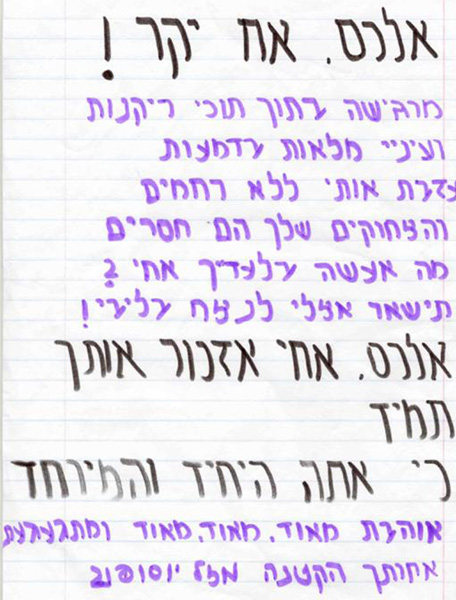 אלכס, אח יקר!
מרגישה בתוך תוכי ריקנות
ועיניי מלאות בדמעות
עזבת אותי ללא רחמים
והצחוקים שלך הם חסרים
מה אעשה בלעדיך אחי?
תישאר אצלי לנצח בליבי!
אלכס, אחי אזכור אותך
תמיד
כי אתה היחיד והמיוחד
אוהבת מאוד, מאוד, מאוד ומתגעגעת
אחותך הקטנה מזל יוסופוב